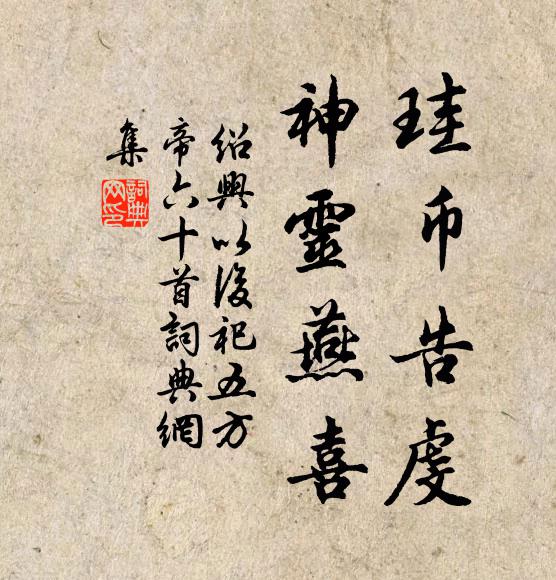 珪币告虔
神靈燕喜
紹興以後祀五方
帝六十首詞典網
集
詞典
网印